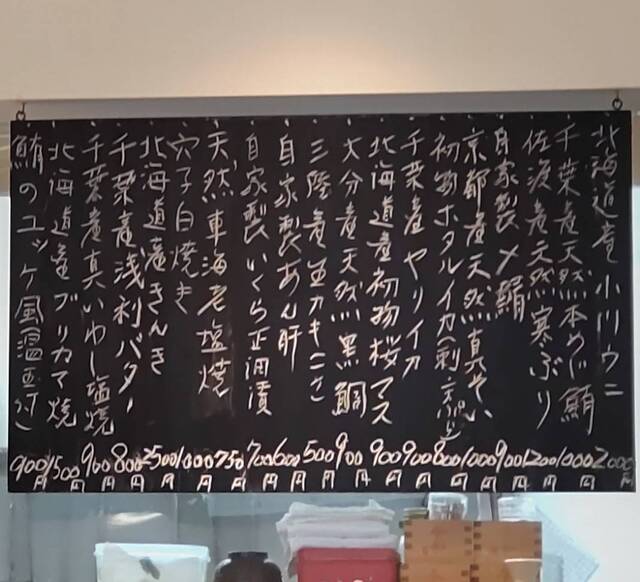 北海道産 小川ウニ 2000円
千葉産天然本めじ鮪 1000円
佐渡産天然寒ぶり 1200円
自家製〆鯖 900円
京都産天然真ぞい 1000円
初物ホタルイカ(刺、天ぷら) 800円
千葉産ヤリイカ 900円
北海道産初物桜マス 900円
大分産天然黒鯛 900円
三陸産生カキ(二ケ) 500円
自家製あん肝 600円
自家製いくら正油漬 700円
天然車海老塩焼 750円
穴子白焼き 1000円
北海道産きんき 2500円
千葉産浅利バター 800円
千葉産真いわし塩焼 900円
北海道産ブリカマ焼 1500円
鮪のユッケ風(温玉付) 900円